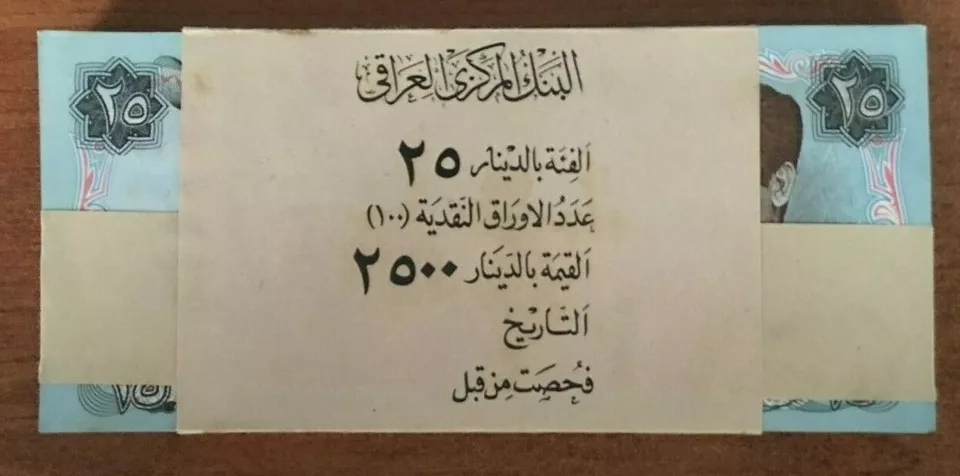 البنك المركزي العراقي
الفئة بالدينار ٢٥
عدد الاوراق النقدية (١٠٠)
القيمة بالدينار ٢٥٠٠
التاريخ
فحصت من قبل
٢٥
٢٥
٢٥